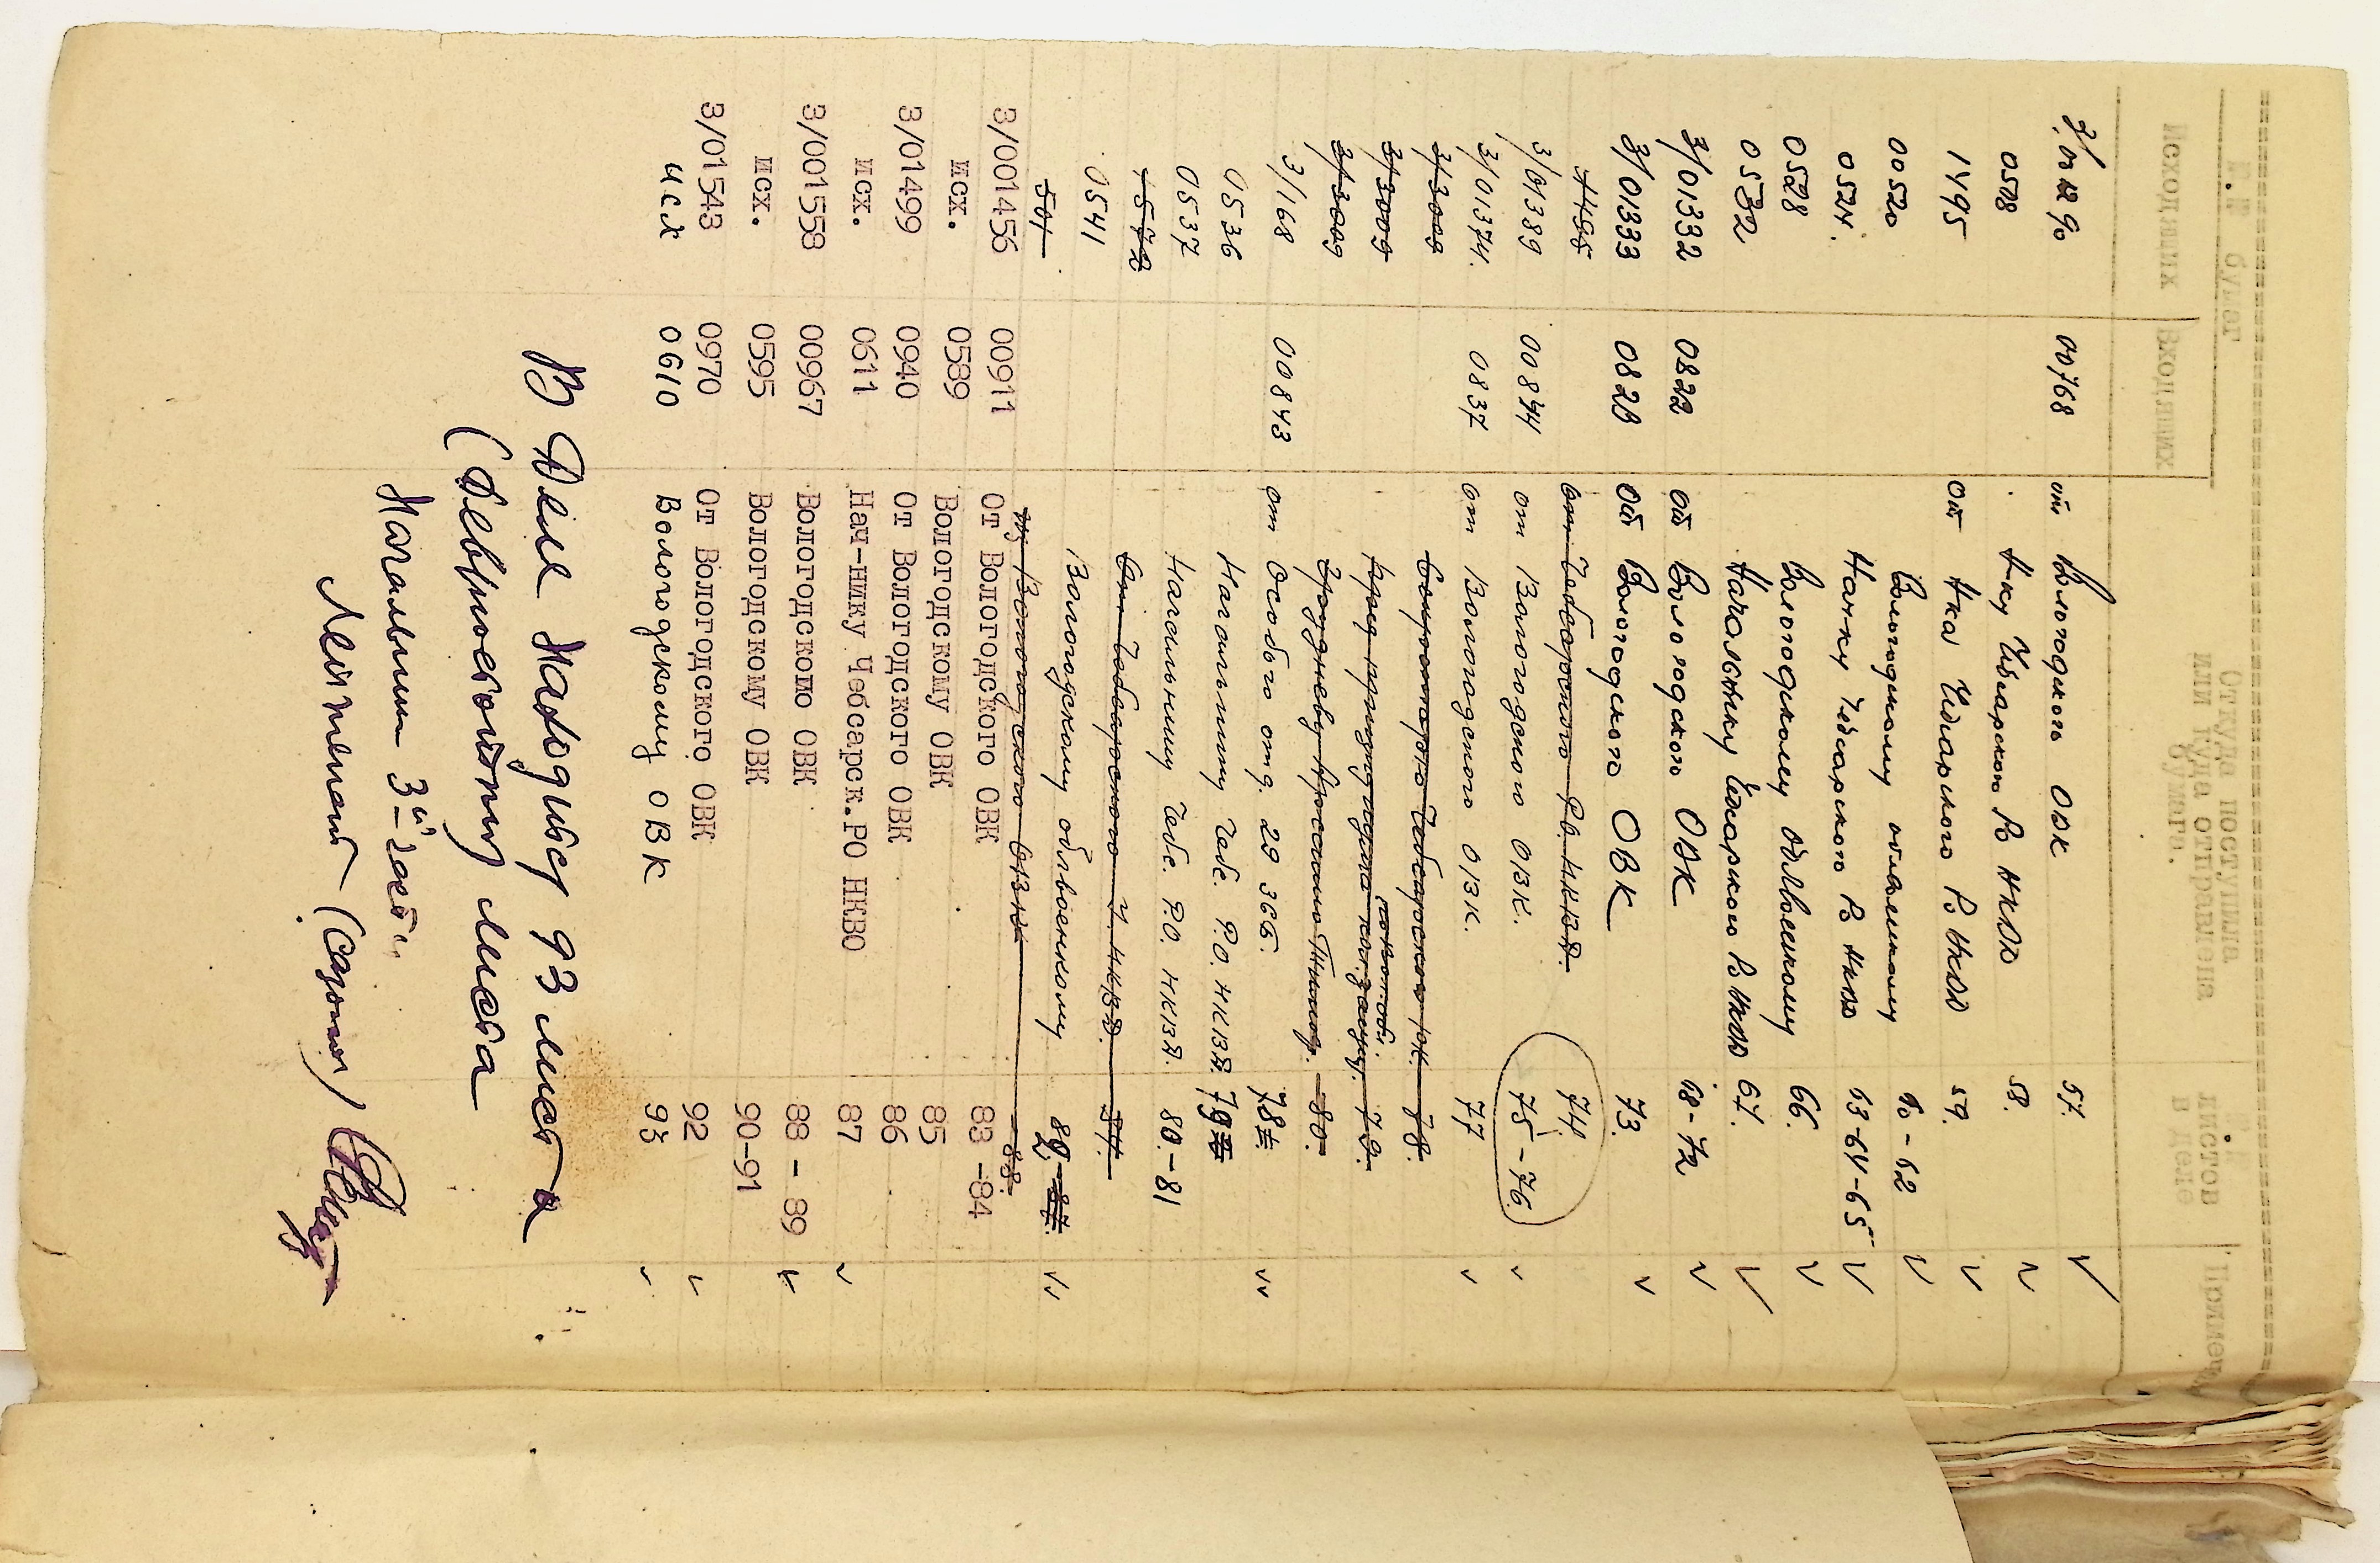 №.№ бумаг
Исходящих Входящих Откуда поступила или куда отправлена бумага. листов в деле Примечан
00768 от Вологодского ОВК 57.
0518 Н-ку Чебсарского РО НКВД 58.
1495 от Н-ка Чебсарского РО НКВД 59.
00520 Вологодскому облвоенкому 60-62
0524. Начку Чебсарского РО НКВД 63-64-65
0528 Вологодскому Облвоенкому 66.
0532 Начальнику Чебсарского РО НКВД 67.
3/01332 0822 от Вологодского ОВК 68-72
3/01333 0828 от Вологодского ОВК 73.
1495 от Чебсарского Р.О. НКВД. 74.
3/01389 00844 от Вологодского ОВК. 75-76.
3/01374. 0837 от Вологодского ОВК. 77
3/3009 78.
3/3009 79.
3/3009 80.
3/168 00843 от Особого отд. 29 ЗСБ. 78
0536 Начальнику Чебс. Р.О. НКВД. 79
0537 Начальнику Чебс. Р.О. НКВД. 80.-81
1572 От Чебсарского НКВД.
0541 Вологодскому облвоенкому 82.
501 Вологодского ОВК 88.
3/001456 00911 От Вологодского ОВК 83-84
исх. 0589 Вологодскому ОВК 85
3/01499 0940 От Вологодского ОВК 86
исх. 0611 Нач-нику Чебсарск.РО НКВО 87
3/001558 00967 Вологодскомо ОВК 88 - 89
исх. 0595 Вологодскому ОВК 90-91
3/01543 0970 От Вологодского ОВК 92
исх 0610 Вологодскому ОВК 93
В Деле Находится 93 листа
(Девяносто три) листа
Начальник 3й части
Лейтенант (Сазонов)